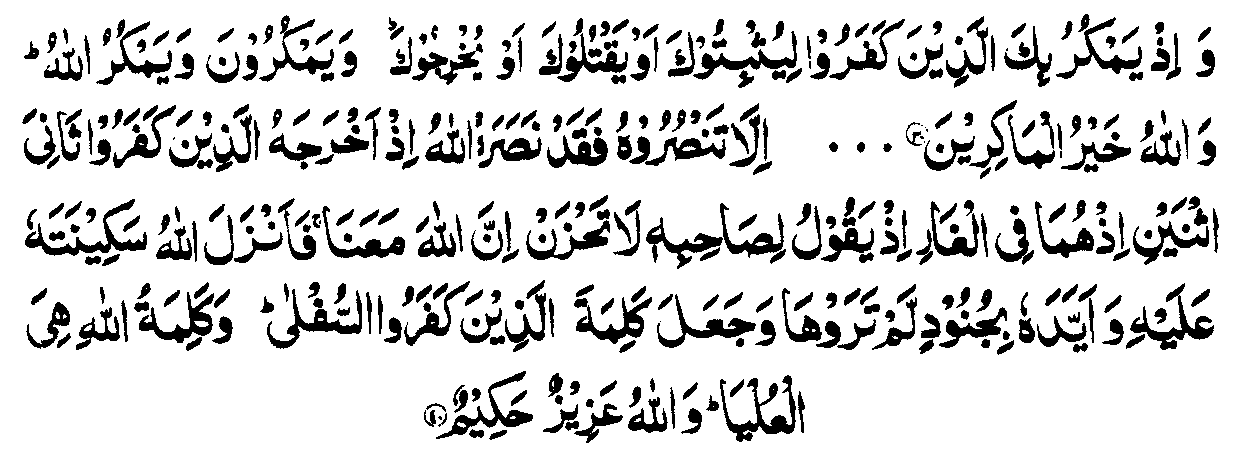 وَ اِذْ يَمْكُرُ بِكَ الَّذِيْنَ كَفَرُوْا لِيُثْبِتُوْكَ اَوْ يَقْتُلُوْكَ اَوْ يُخْرِجُوْكَ ؕ وَيَمْكُرُوْنَ وَيَمْكُرُ اللّٰهُ ؕ
وَ اللّٰهُ خَيْرُ الْمَاكِرِيْنَ ۝۳۰ ... اِلَّا تَنْصُرُوْهُ فَقَدْ نَصَرَهُ اللّٰهُ اِذْ اَخْرَجَهُ الَّذِيْنَ كَفَرُوْا ثَانِيَ
اثْنَيْنِ اِذْ هُمَا فِي الْغَارِ اِذْ يَقُوْلُ لِصَاحِبِهٖ لَا تَحْزَنْ اِنَّ اللّٰهَ مَعَنَا ۚ فَاَنْزَلَ اللّٰهُ سَكِيْنَتَهٗ
عَلَيْهِ وَ اَيَّدَهٗ بِجُنُوْدٍ لَّمْ تَرَوْهَا وَجَعَلَ كَلِمَةَ الَّذِيْنَ كَفَرُوا السُّفْلٰى ؕ وَكَلِمَةُ اللّٰهِ هِيَ
الْعُلْيَا ؕ وَ اللّٰهُ عَزِيْزٌ حَكِيْمٌ ۝۴۰